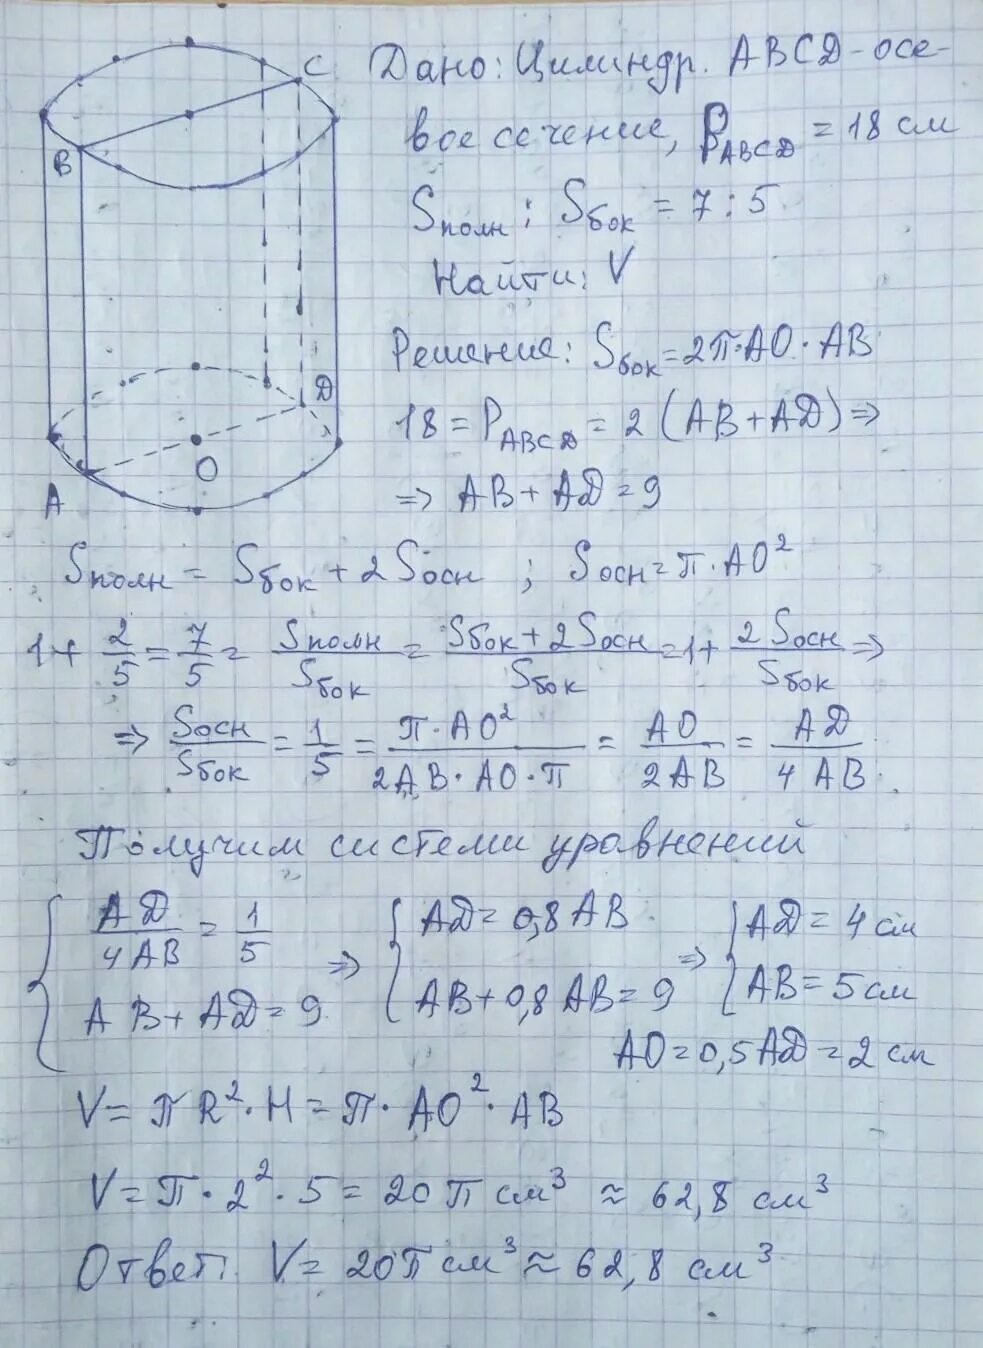 C
B
D
O
A
Дано: Цилиндр. ABCD - осе-
вое сечение, P_ABCD = 18 см
Sполн : Sбок = 7 : 5
Найти: V
Решение: Sбок = 2π·AO·AB
18 = P_ABCD = 2 (AB + AD) ⇒
⇒ AB + AD = 9
Sполн = Sбок + 2 Sосн ; Sосн = π·AO²
1 + 2/5 = 7/5 = Sполн/Sбок = (Sбок + 2 Sосн)/Sбок = 1 + 2 Sосн/Sбок ⇒
⇒ Sосн/Sбок = 1/5 = π·AO²/(2AB·AO·π) = AO/2AB = AD/4AB
Получим системи уравнений
{ AD/4AB = 1/5 ⇒ { AD = 0,8 AB ⇒ { AD = 4 см
AB + AD = 9 AB + 0,8 AB = 9 AB = 5 см
AO = 0,5 AD = 2 см
V = πR²·H = π·AO²·AB
V = π·2²·5 = 20π см³ ≈ 62,8 см³
Ответ: V = 20π см³ ≈ 62,8 см³